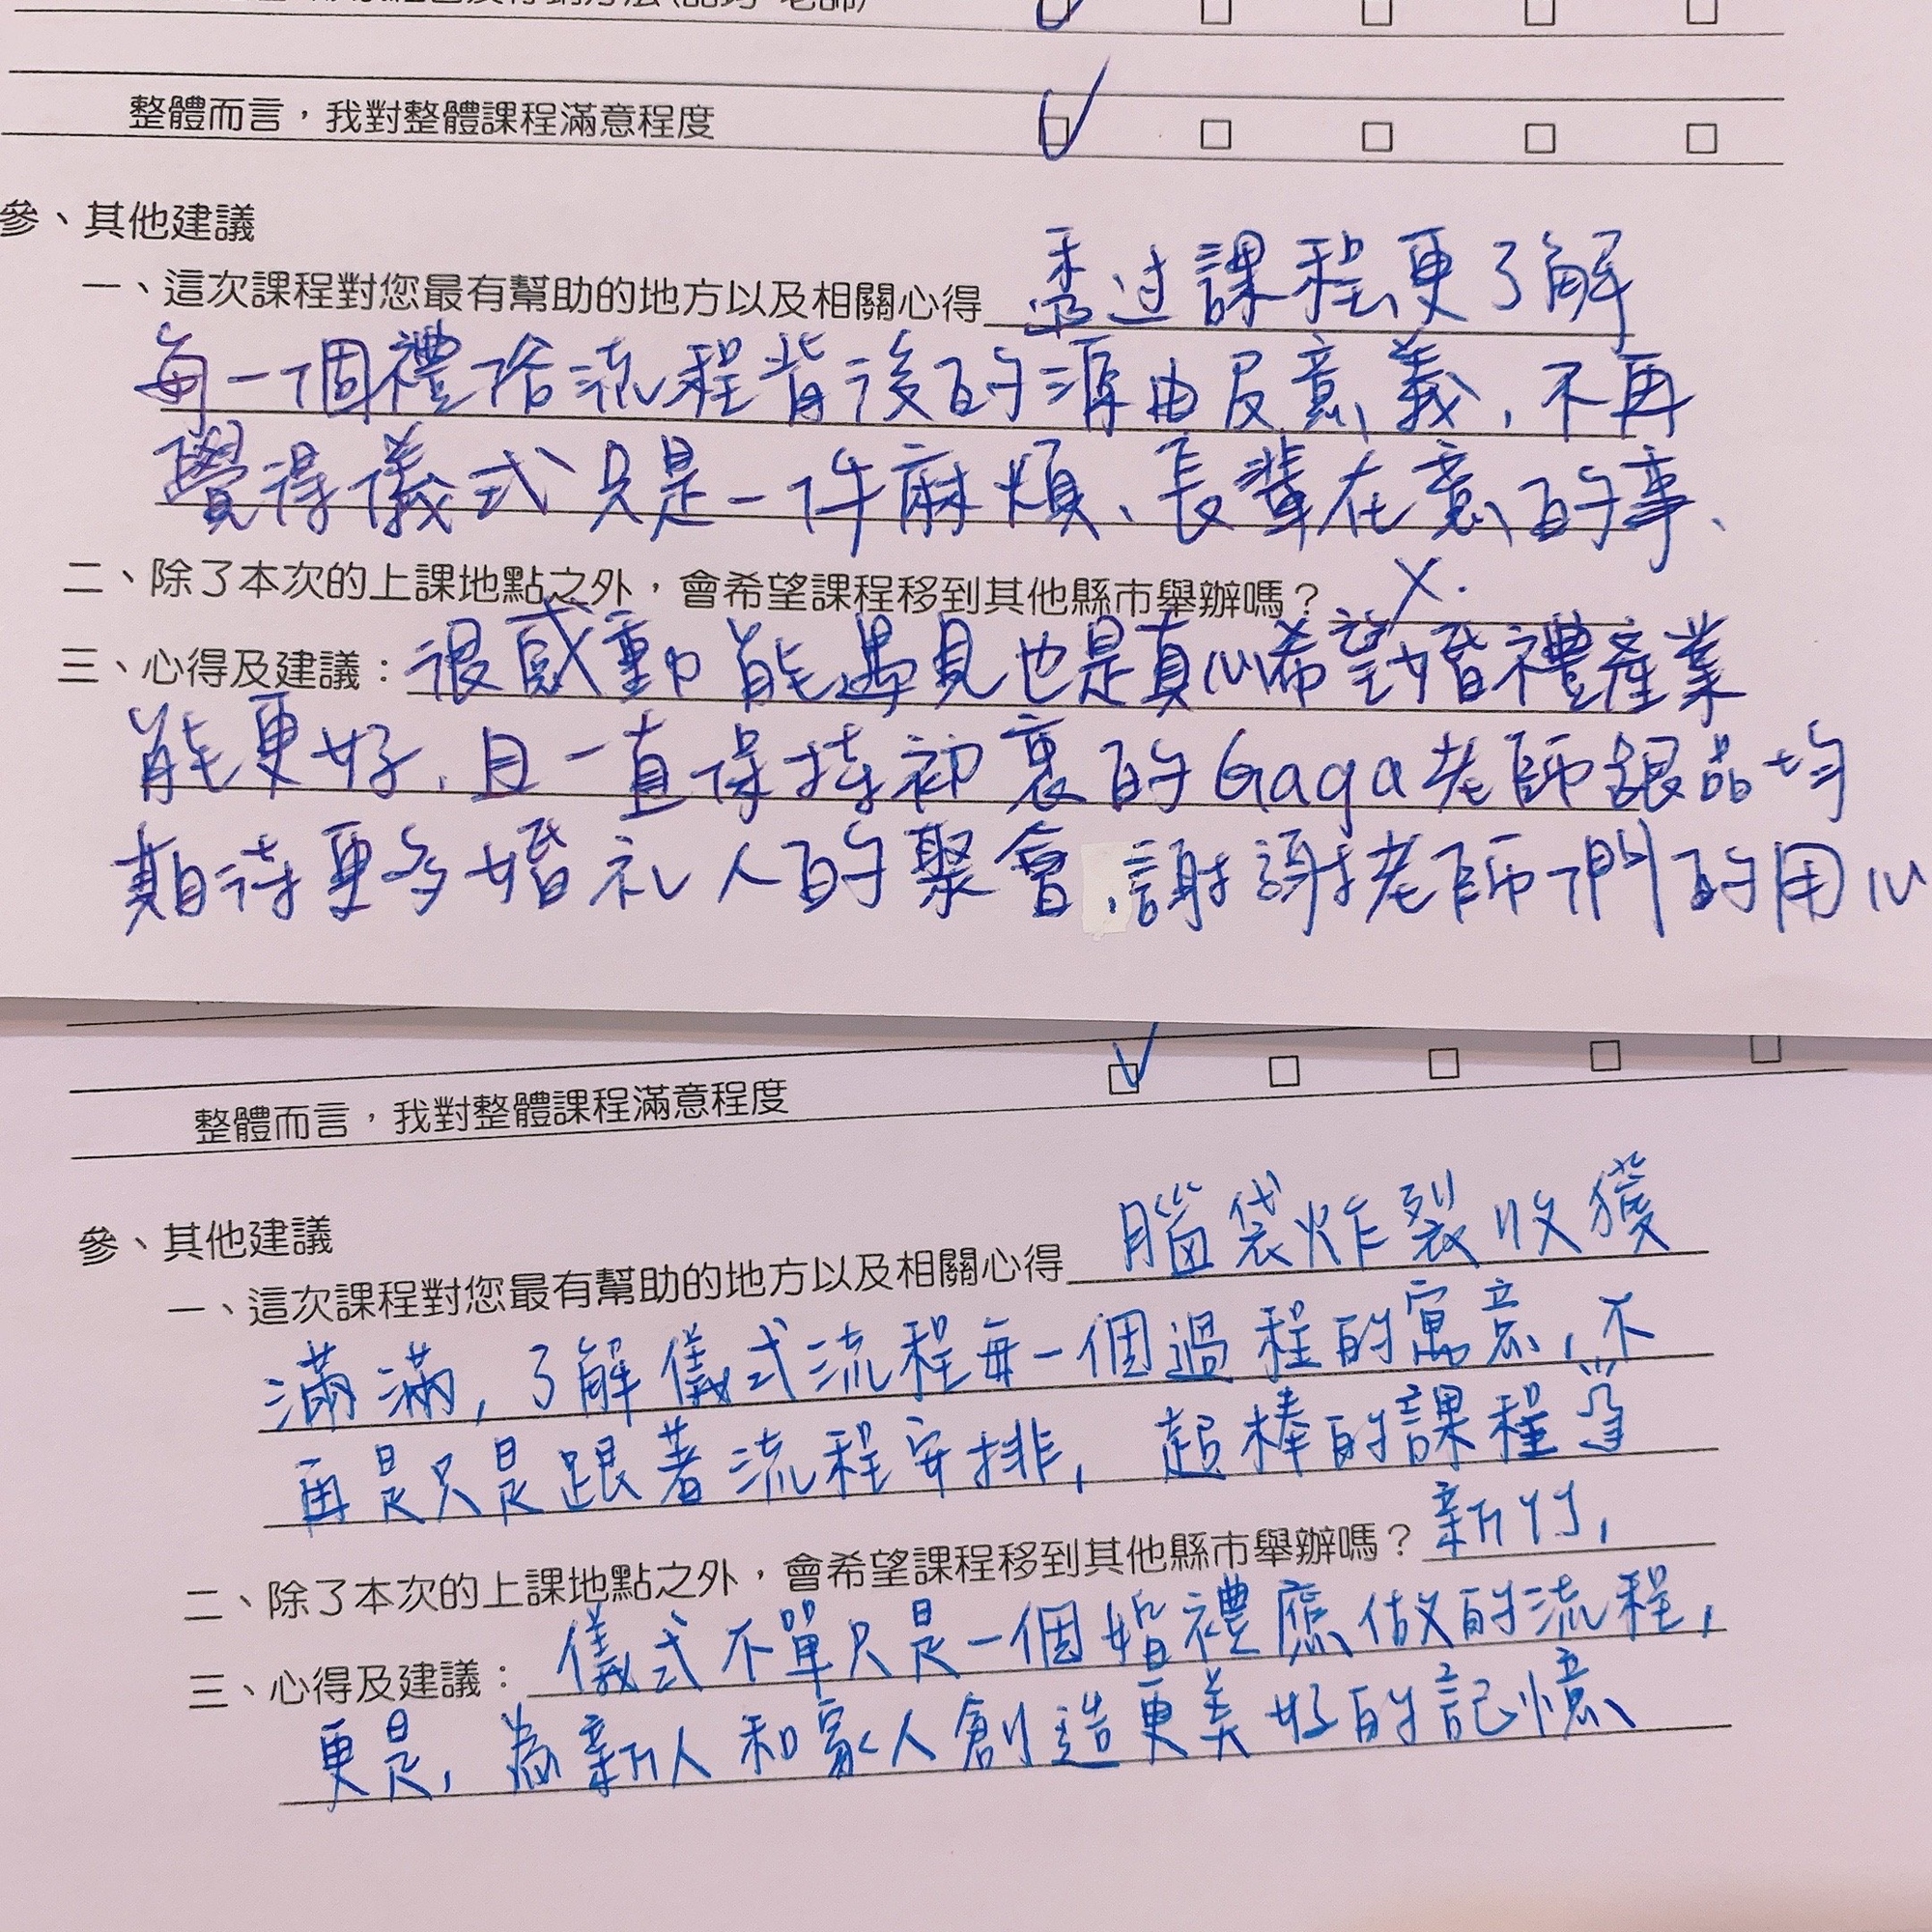 整體而言，我對整體課程滿意程度
參、其他建議
一、這次課程對您最有幫助的地方以及相關心得 透过課程更了解
每一個禮俗流程背後的源由及意義，不再
覺得儀式只是一件麻煩、長輩在意的事、
二、除了本次的上課地點之外，會希望課程移到其他縣市舉辦嗎？ X.
三、心得及建議：很感動能遇見也是真心希望婚禮產業
能更好，且一直保持初衷的Gaga老師跟品均
期待更多婚礼人的聚會，謝謝老師們的用心
整體而言，我對整體課程滿意程度
參、其他建議
一、這次課程對您最有幫助的地方以及相關心得 腦袋炸裂收獲
滿滿，了解儀式流程每一個過程的寓意，不
再是只是跟著流程安排，超棒的課程
二、除了本次的上課地點之外，會希望課程移到其他縣市舉辦嗎？ 新竹，
三、心得及建議：儀式不單只是一個婚禮應做的流程，
更是，為新人和家人創造更美好的記憶